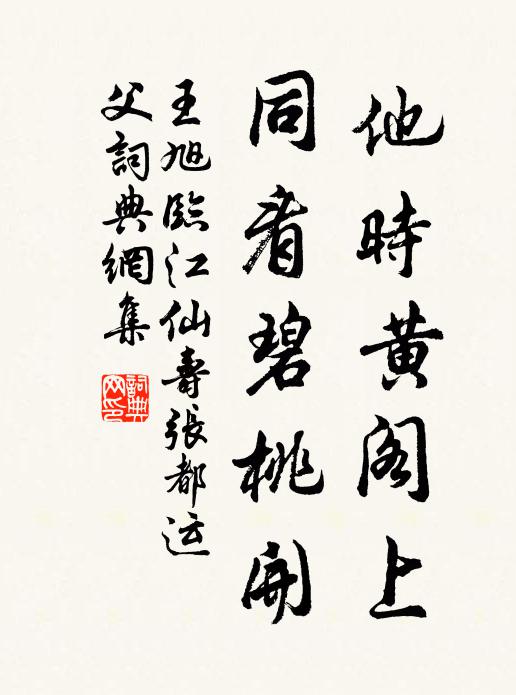 他時黃閣上
同看碧桃開
王旭臨江仙壽張都运
父詞典網集
詞典
网印